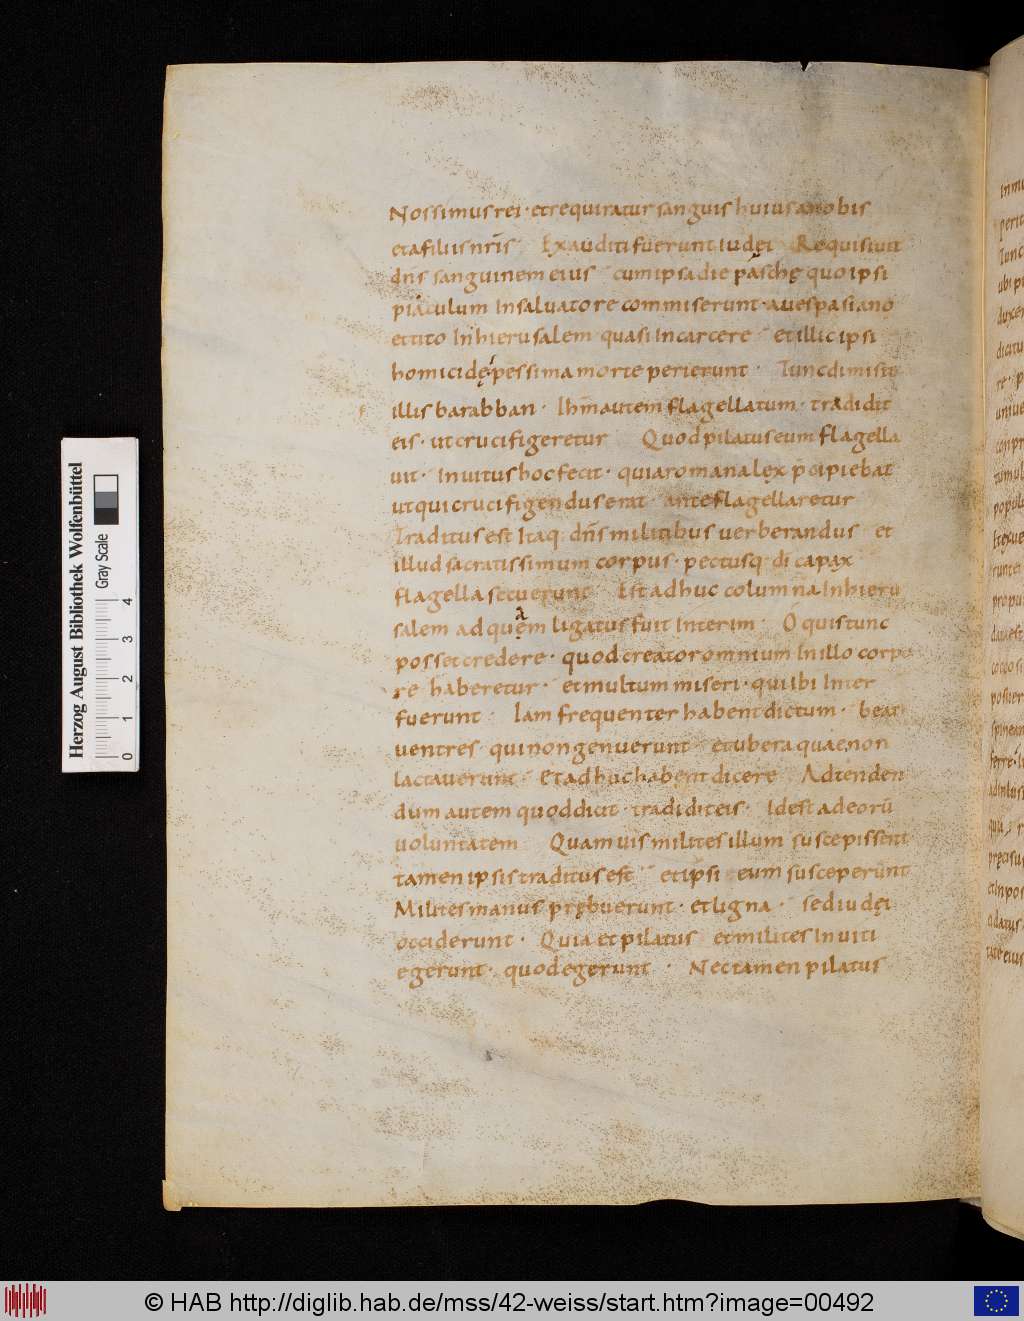 Nos simus rei · et requiratur sanguis huius a nobis
et a filiis nr̄is Exauditi fuerunt iudęi Requisiuit
dn̄s sanguinem eius cum ipsa die paschę quo ipsi
piaculum In saluatore commiserunt · a uespasiano
et tito In hierusalem quasi In carcere et illic ipsi
homicidę pessima morte perierunt · Tunc dimisit
illis barabban · Ihm̄ autem flagellatum · tradidit
eis · ut crucifigeretur Quod pilatus eum flagella
uit · Inuitus hoc fecit · quia romana lęx p̄cipiebat
ut qui crucifigendus erat ante flagellaretur
Traditus est Itaq· dn̄s militibus uerberandus et
illud sacratissimum corpus · pectusq· di capax
flagella secuerunt Est adhuc columna In hieru
salem ad quem ligatus fuit Interim · O quis tunc
posset credere · quod creator omnium In illo corpo
re haberetur · et multum miseri · qui Ibi Inter
fuerunt Iam frequenter habent dictum · beati
uentres · qui non genuerunt et ubera quae non
lactauerunt Et adhuc habent dicere Adtenden
dum autem quod dicit · tradidit eis · Id est ad eorū
uoluntatem Quamuis milites illum suscepissent
tamen ipsis traditus est et ipsi eum susceperunt
Milites manus prębuerunt · et ligna · sed iudęi
occiderunt · Quia et pilatus et milites Inuiti
egerunt · quod egerunt · Nec tamen pilatus
Herzog August Bibliothek Wolfenbüttel
Gray Scale
0 1 2 3 4
© HAB http://diglib.hab.de/mss/42-weiss/start.htm?image=00492